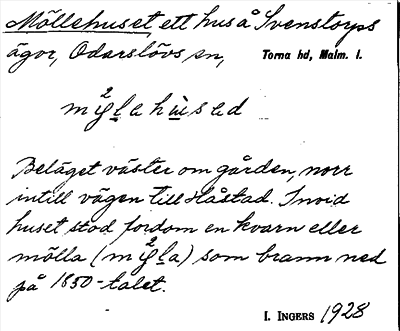 Möllehuset, ett hus å Svenstorps
ägor, Odarslövs sn, Torna hd, Malm. l.
Beläget väster om gården, norr
intill vägen till Håstad. Invid
huset stod fordom en kvarn eller
mölla () som brann ned
på 1850-talet.
I. INGERS 1928